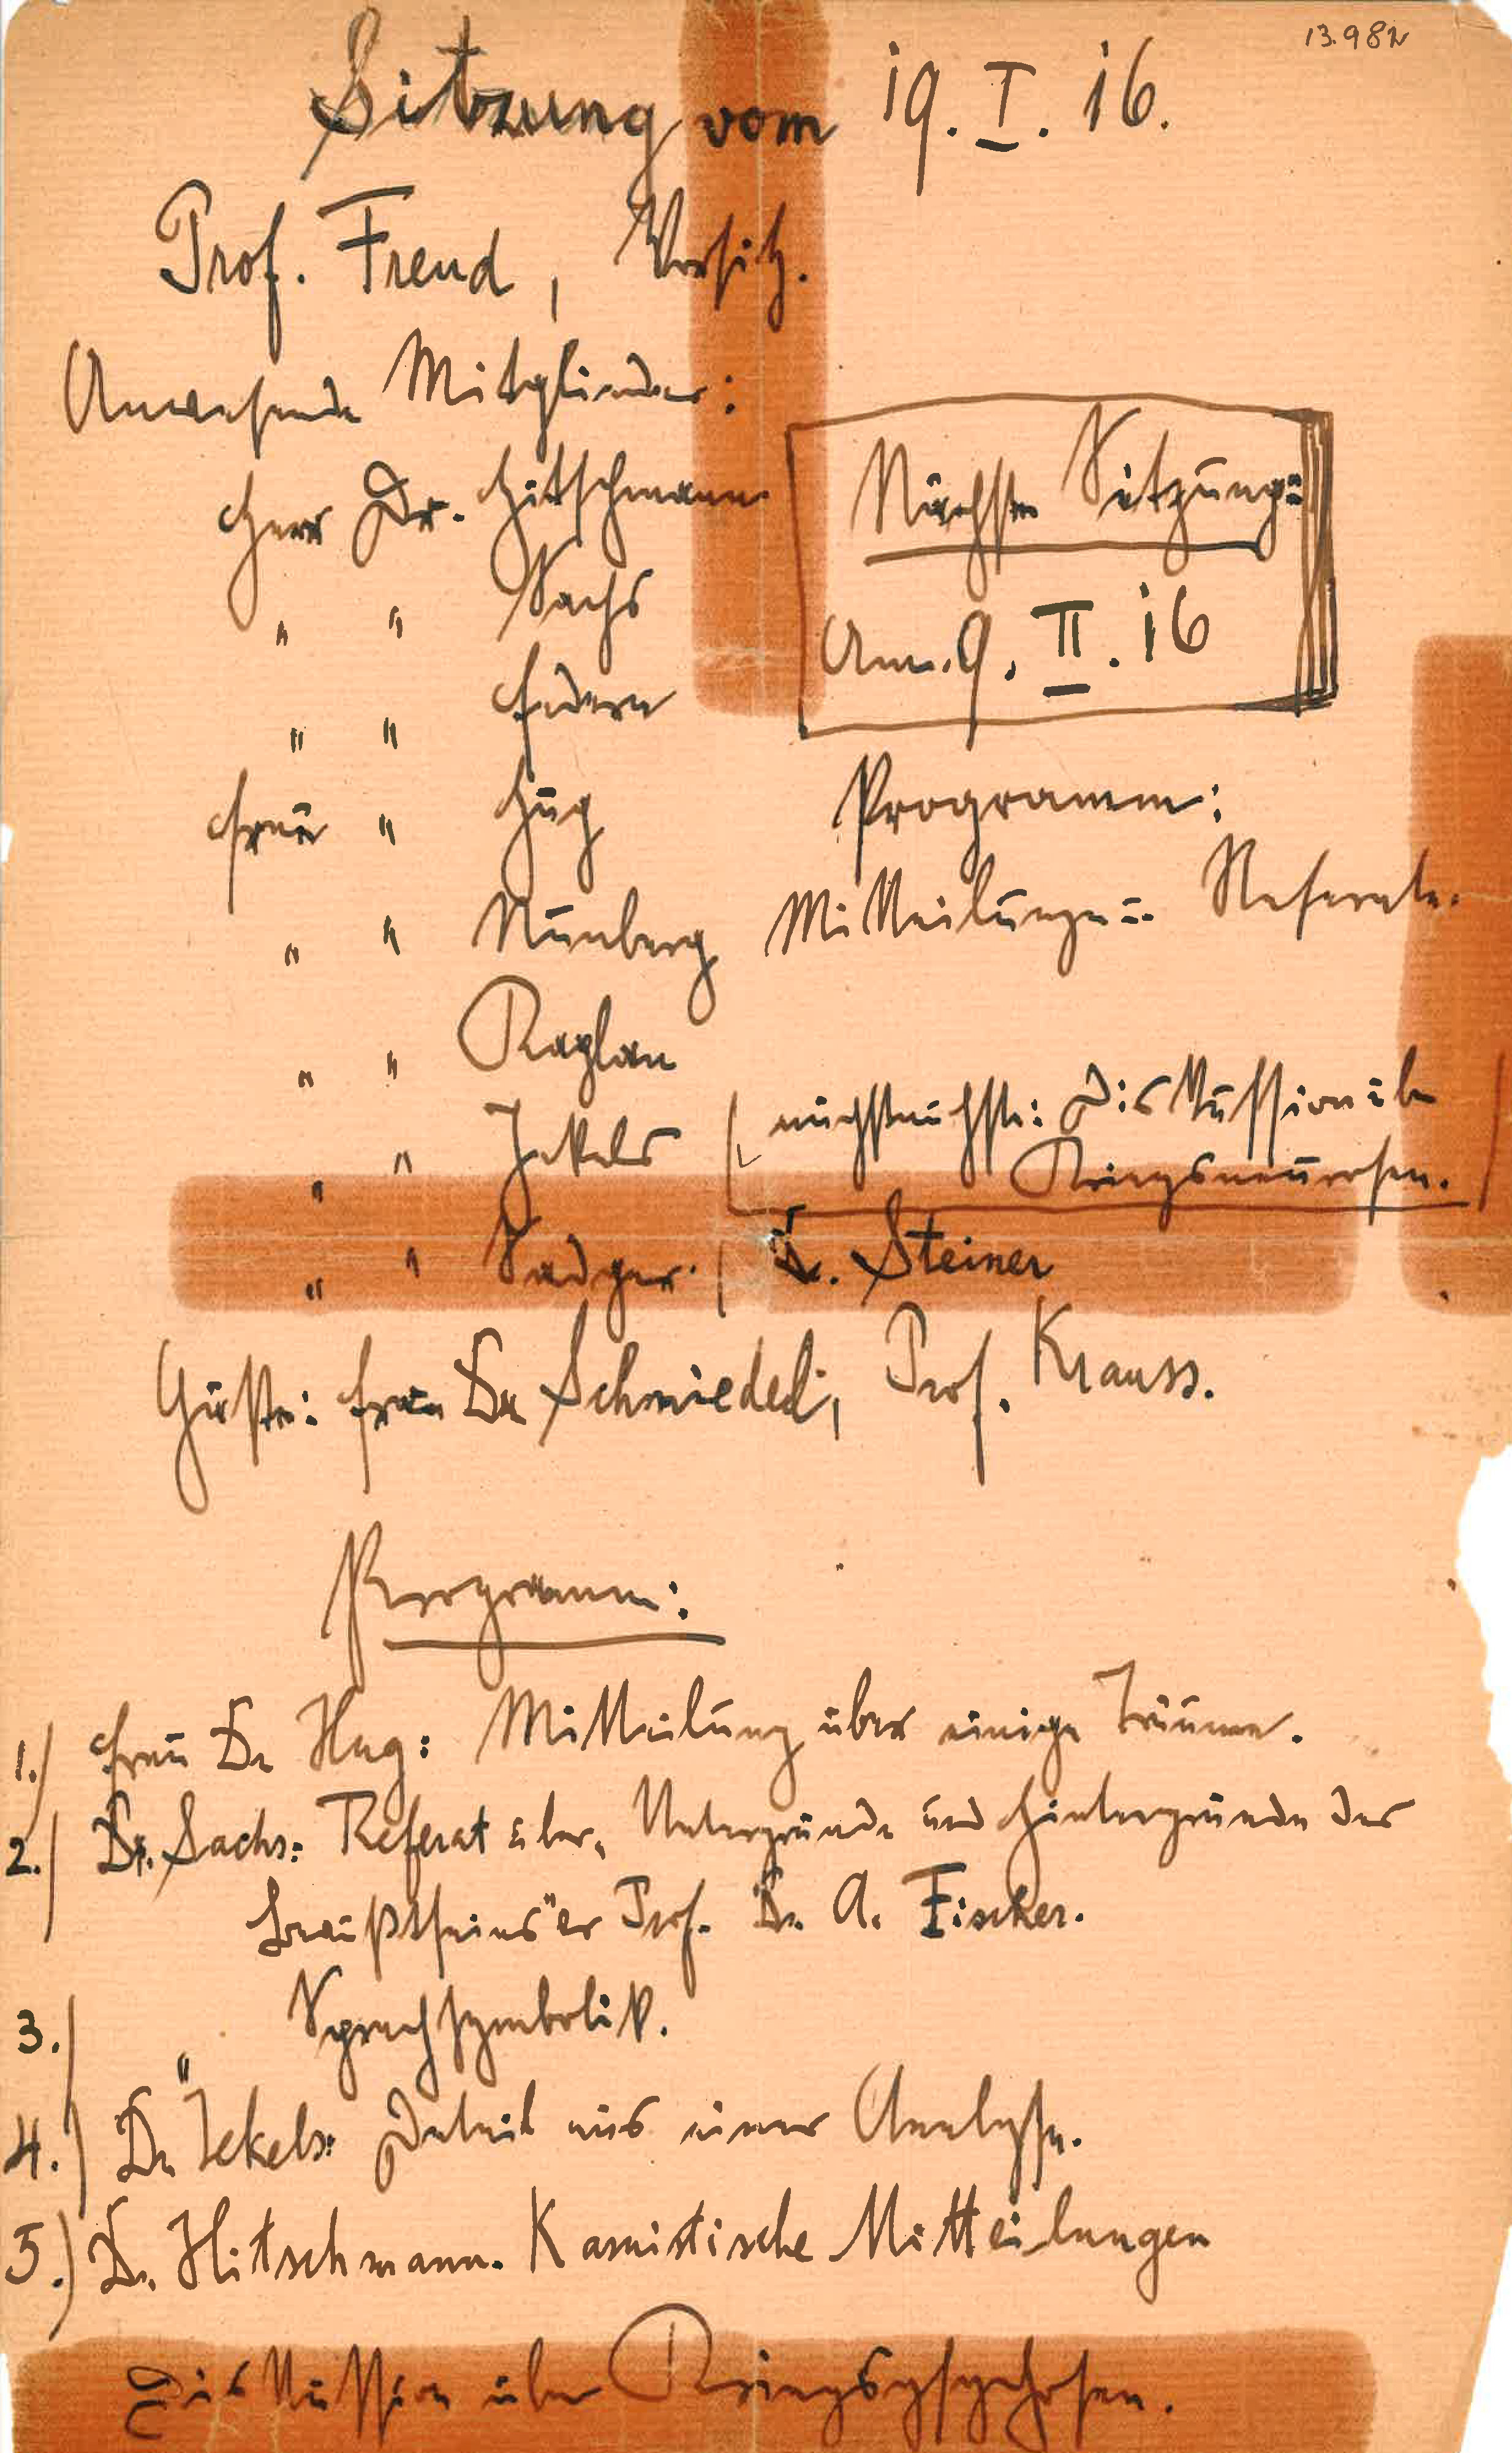 13.982
Sitzung vom 19. I. 16.
Prof. Freud, Vorsitz.
Anwesende Mitglieder:
Herr Dr. Hitschmann
" " Sachs
" " Federn
Frau " Hug
" " Nunberg
" " Kaplan
" " Jekels
" " Sadger. Dr. Steiner
Nächste Sitzung:
Am 9. II. 16
Programm:
Mitteilungen u. Referate.
nächstnächste: Diskussion über
Kriegsneurosen.
Gäste: Frau Dr Schmiedel, Prof. Krauss.
Programm:
1.) Frau Dr Hug: Mitteilung über einige Träume.
2.) Dr. Sachs: Referat über „Untergründe und Hintergründe des
Bewußtseins" Prof. Dr. A. Fischer.
3.) " Sprachsymbolik.
4.) Dr Jekels: Detail aus einer Analyse.
5.) Dr. Hitschmann. Kasuistische Mitteilungen
Diskussion über Kriegspsychosen.